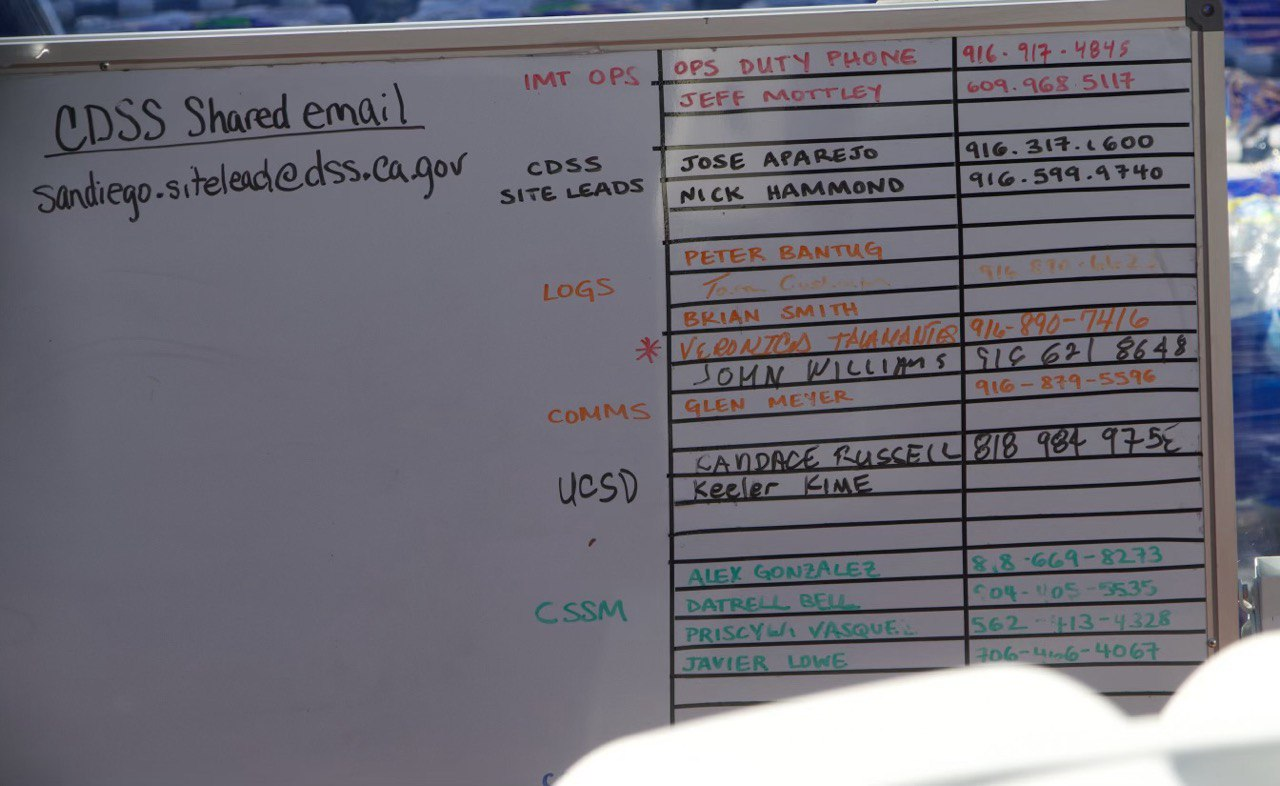 CDSS Shared email
sandiego.sitelead@dss.ca.gov
IMT OPS
OPS DUTY PHONE 916.917.4845
JEFF MOTTLEY 609.968.5117
CDSS
SITE LEADS
JOSE APAREJO 916.317.1600
NICK HAMMOND 916.599.9740
LOGS
PETER BANTUG
BRIAN SMITH
* VERONICA TALAMANTES 916-890-7416
JOHN WILLIAMS 916 621 8648
COMMS
GLEN MEYER 916-879-5596
UCSD
CANDACE RUSSELL 818 984
Keeler KIME
CSSM
ALEX GONZALEZ
DATRELL BELL
VASQUEZ
JAVIER LOWE